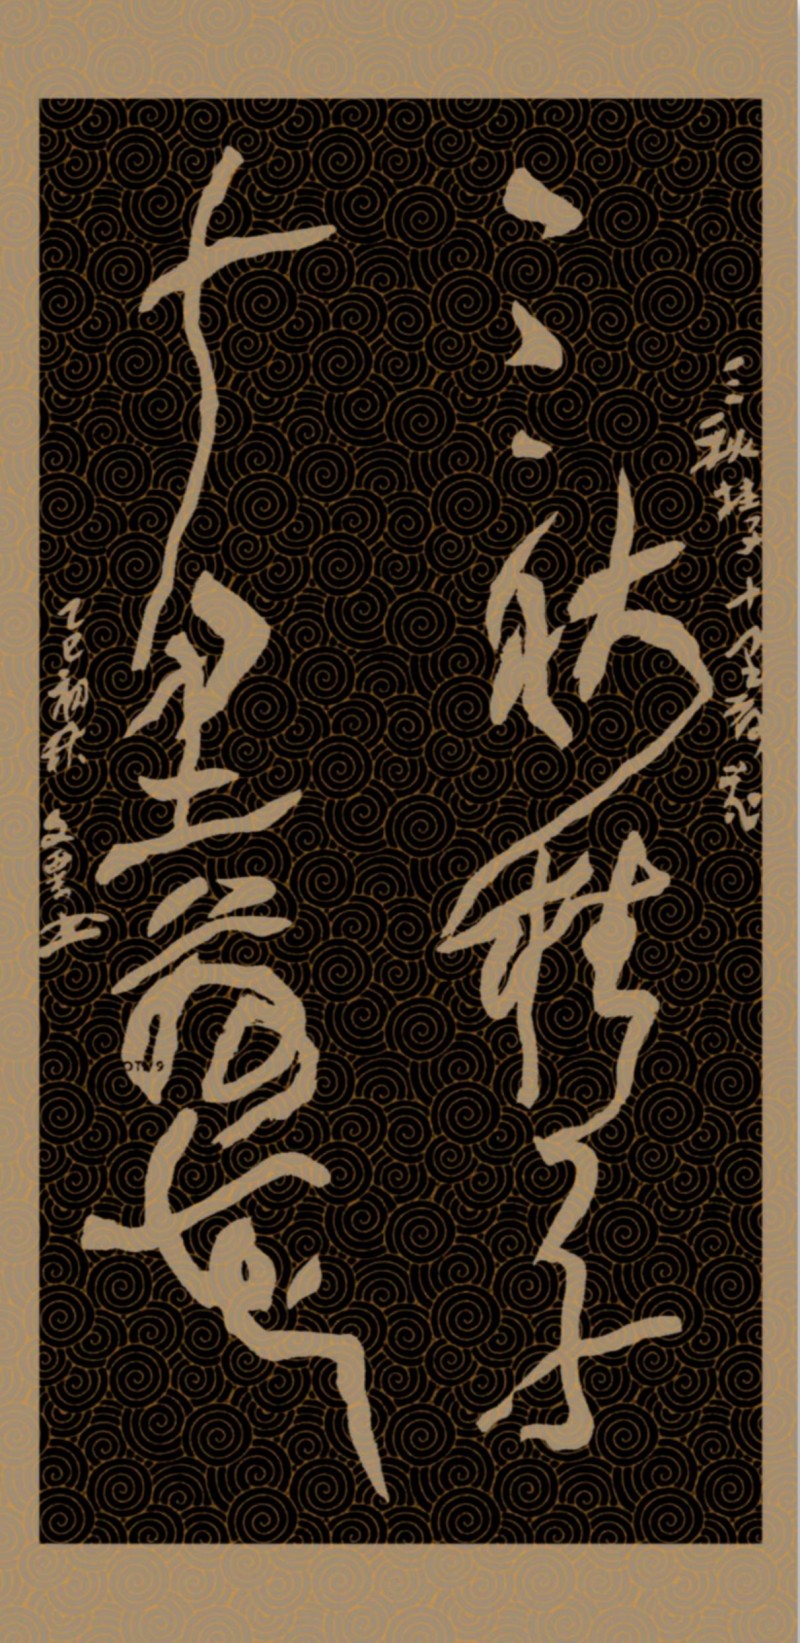 三秋桂子十里荷花
三秋桂子
十里荷花
乙巳初秋